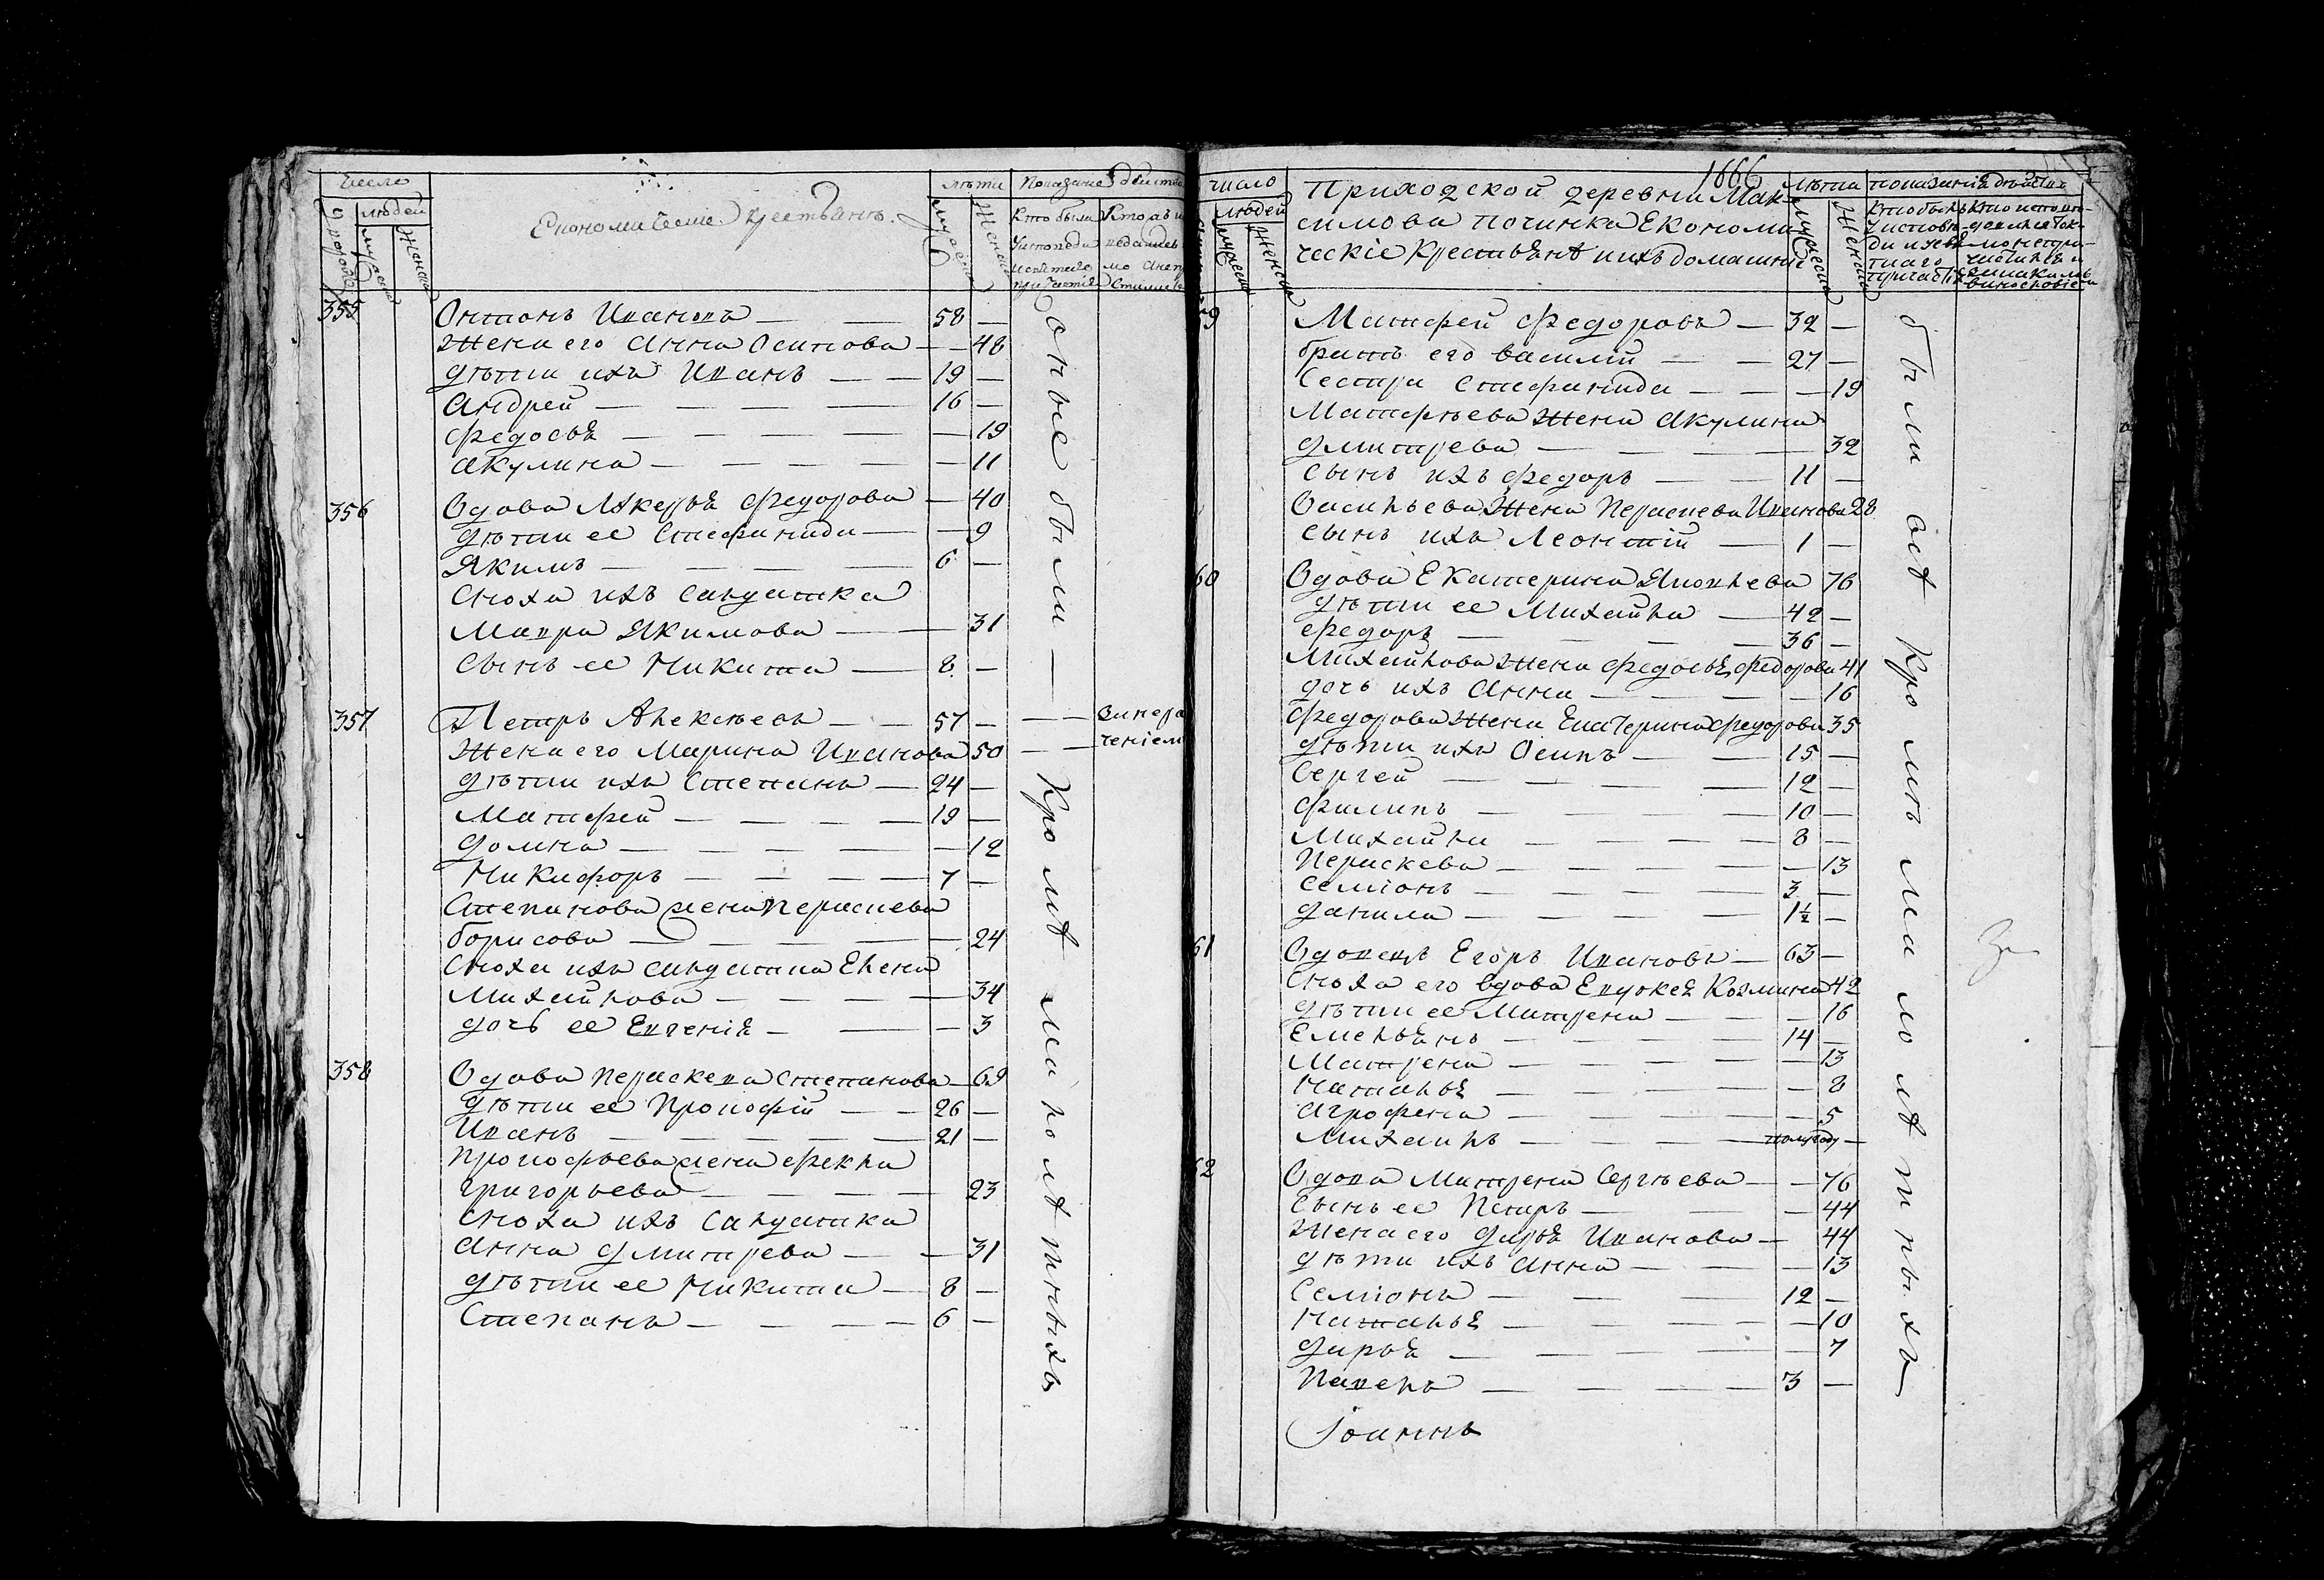 Число
людей
Економическіе крестьяне
лѣта
Показаніе действа
мужеска
Женска
Кто были
у исповеди
и святаго
причастія
355
Онтонъ Ивановъ 58
Жена его Анна Осипова 48
дѣти ихъ Иванъ 19
Андрей 16
Федосья 19
Акулина 11
356
Вдова Лукерья Федорова 40
дѣти ее Стефанида 9
Якимъ 6
Сноха ихъ салдатка
Мавра Якимова 31
Сынъ ее Никита 8
357
Петръ Алексѣевъ 57
Жена его Марина Иванова 50
дѣти ихъ Степанъ 24
Матфей 19
Домна 12
Никифоръ 7
Степанова жена Параскева
Борисова 24
Сноха ихъ салдатка Елена
Михайлова 34
дочь ее Евгенія 3
358
Вдова Параскева Степанова 69
дѣти ее Прокофій 26
Иванъ 21
Прокофьева жена Фекла
Григорьева 23
Сноха ихъ Салдатка
Анна Дмитрева 31
дѣти ее Никита 8
Степанъ 6
оные были
Кромѣ малолѣтныхъ
за нера
ченіем
1666
число
людей
мужеска
Женска
Приходской деревни Мак
симова починка Економи
ческіе Крестьянѣ и ихъ домашніе
лѣта
показаніе действа
мужеска
Женска
59
Матфей Федоровъ 32
братъ его Василій 27
Сестра Стефанида 19
Матфѣева жена Акулина
Дмитрева 32
Сынъ ихъ Федоръ 11
Васильева Жена Параскева Иванова 28
Сынъ ихъ Леонтій 1
60
Вдова Екатерина Яковлева 76
дѣти ее Михайла 42
Федоръ 36
Михайлова Жена Федосья Федорова 41
дочь ихъ Анна 16
Федорова Жена Екатерина Федорова 35
дѣти ихъ Осипъ 15
Сергей 12
Филипъ 10
Михайла 8
Параскева 13
Семіонъ 3
Данила 1½
61
Вдовецъ Егоръ Ивановъ 63
Сноха его вдова Евдокея Козмина 42
дѣти ее Матрена 16
Емельянъ 14
Матрена 13
Наталья 8
Агрофена 5
Михаилъ полугоду
62
Вдова Матрена Сергѣева 76
Сынъ ее Петръ 44
Жена его Дарья Иванова 44
дѣти ихъ Анна 13
Семіонъ 12
Наталья 10
Дарья 7
Павелъ 3
Іоаннъ
были всѣ кромѣ малолѣтныхъ